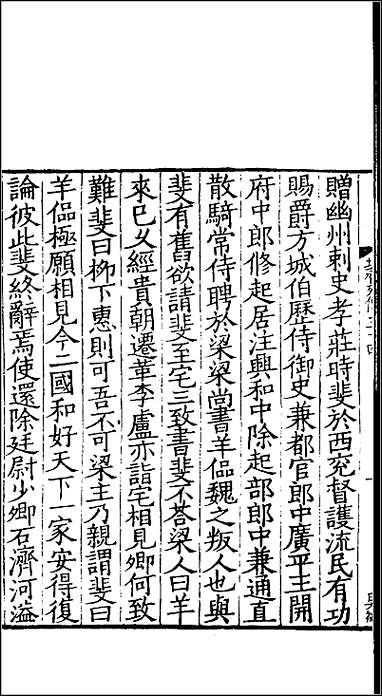 贈幽州刺史孝莊時斐於西兗督護流民有功
賜爵方城伯歷侍御史兼都官郎中廣平王開
府中郎修起居注興和中除起部郎中兼通直
散騎常侍聘於梁梁尚書羊偘魏之叛人也與
斐有舊欲請斐至宅三致書斐不荅梁人曰羊
來已乆經貴朝遷革李盧亦詣宅相見卿何致
難斐曰栁下惠則可吾不可梁主乃親謂斐曰
羊偘極願相見今二國和好天下一家安得復
論彼此斐終辭焉使還除廷尉少卿石濟河溢